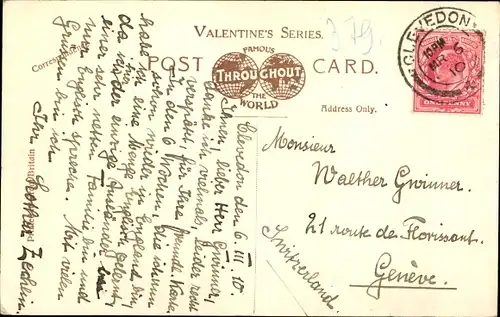 VALENTINE'S SERIES.
379.
POST CARD.
FAMOUS
THROUGHOUT
THE
WORLD
Address Only.
CLEVEDON
10 PM
MR 6
10
ONE PENNY
Monsieur
Walther Gwinner.
21 route de Florissant.
Genève.
Switzerland.
Clevedon den 6 III. 10.
Ihnen, lieber Herr Gwinner,
danke ich vielmals, leider recht
verspätet, für Ihre Karte.
In den 6 Wochen, die ich nun
schon wieder in England bin,
habe ich eine Menge Englisch gelernt,
da ich
einer sehr netten Familie bin und
nur Englisch spreche. Mit vielen
Grüßen bin ich
Ihr Lothar